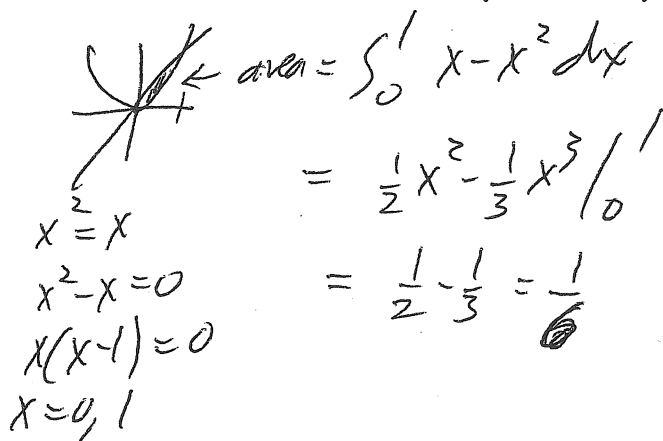 ← area = ∫₀¹ x - x² dx
= 1/2 x² - 1/3 x³ /₀¹
= 1/2 - 1/3 = 1/6
x² = x
x² - x = 0
x(x-1) = 0
x = 0, 1